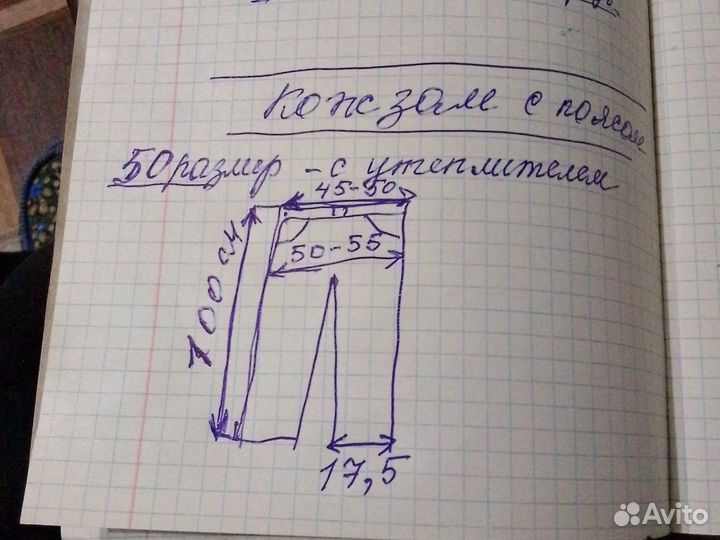 Кожзам с поясом
50 размер - с утеплителем
45-50
50-55
100 см
17,5
Avito